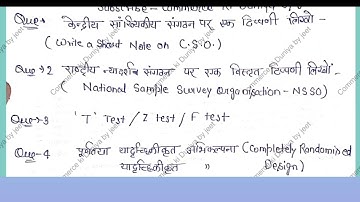 Subscribe - Commerce ki Duniya by Jeet
Que.1 केन्द्रीय सांख्यिकीय संगठन पर एक टिप्पणी लिखो -
(Write a Short Note on C.S.O.)
Que.2 राष्ट्रीय न्यादर्श संगठन पर एक विस्तृत टिप्पणी लिखों -
(National Sample Survey Organisation - NSSO)
Que.3 'T' Test / Z test / F test
Que.4 पूर्णतया यादृच्छिकीकृत अभिकल्पना (Completely Randomised
यादृच्छिकीकृत " " Design)